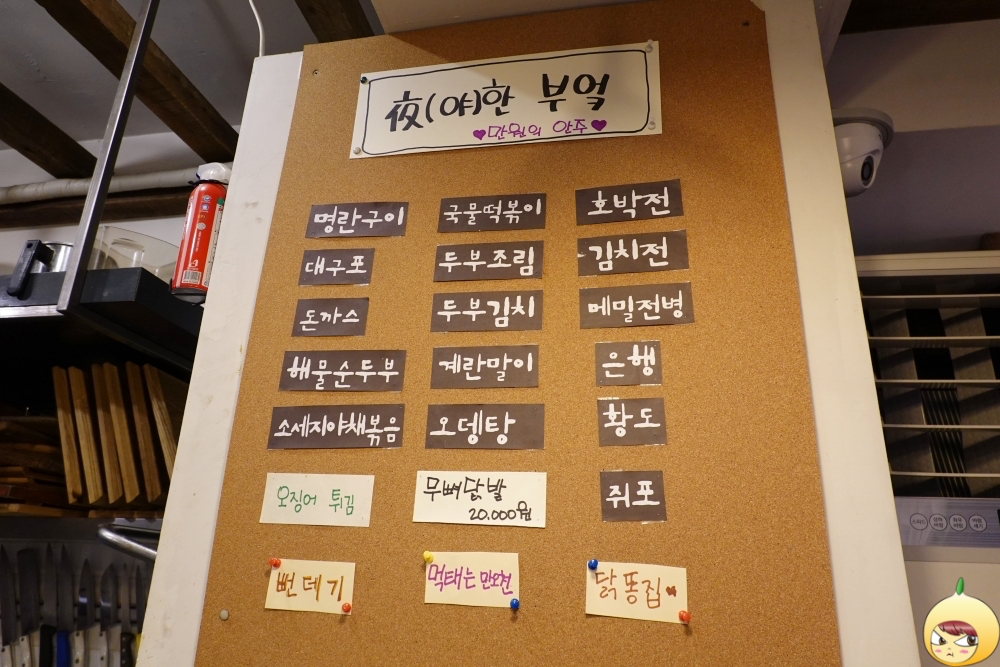 夜(야)한 부엌
♥만원의 안주♥
명란구이
국물떡볶이
호박전
대구포
두부조림
김치전
돈까스
두부김치
메밀전병
해물순두부
계란말이
은행
소세지야채볶음
오뎅탕
황도
오징어 튀김
무뼈닭발
20.000원
쥐포
뻔데기
먹태는 만오천
닭똥집♥